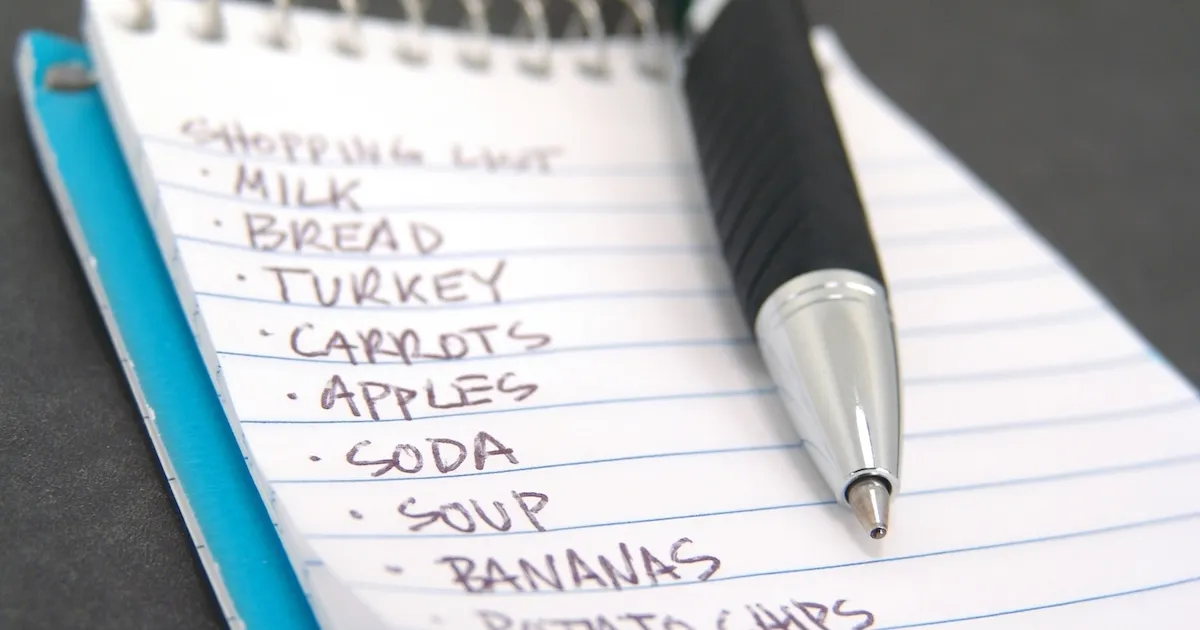 SHOPPING LIST
· MILK
· BREAD
· TURKEY
· CARROTS
· APPLES
· SODA
· SOUP
· BANANAS
· POTATO CHIPS